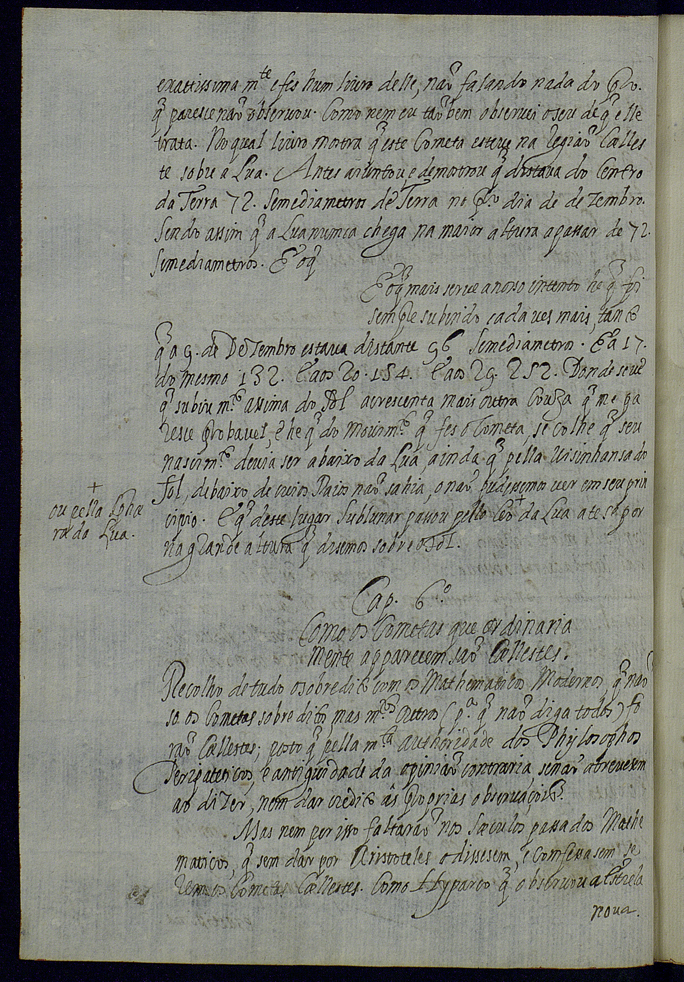 exattissima m.te e fes hum livro delle, não falando nada do Pr.o
q̃ paresce não observou. Como nem eu tão bem observei o seu de q̃ elle
trata. No qual livro mostra q̃ este Cometa esteve na Região Celles
te sobre a Lua. Antes e demostrou q̃ distava do Centro
da Terra 72. Semediametros de Terra no Pr.o dia de dezembro.
Sendo assim q̃ a Lua nunca chega na maior altura a passar de 72.
Simediametros. E o q̃
E o q̃ mais serve a nosso intento he q̃ foi
sempre subindo cada ves mais, tanto
q̃ a 9. de Dezembro estava distante 96 Semediametros. E a 17.
do mesmo 132. E aos 20. 154. E aos 29. 252. Donde se ve
q̃ subiu m.to assima do Sol acrescenta mais outra couza q̃ me pa
resce provavel, e he q̃ do movim.to q̃ fes o Cometa, se colhe q̃ seu
nascim.to devia ser abaixo da Lua, ainda q̃ pella visinhansa do
Sol, debaixo de cujos Raios não sahia, o não pudemos ver em seu prin
cipio. E q̃ deste lugar Sublunar passou pello Ceo + da Lua ate se por
na grande altura q̃ disemos sobre o Sol.
+
ou pella Sphe
ra da Lua.
Cap. 6.o
Como os Cometas que ordinaria
mente apparecem são Cellestes.
Recolho de tudo o sobredito com os Mathematicos Modernos q̃ não
so os Cometas sobreditos mas m.tos outros (p.a q̃ não diga todos) fo
rão Cellestes; posto q̃ pella m.ta authoridade dos Phylosophos
Peripateticos, e antiguidade da opinião contraria se não atrevessem
ao dizer, nem dar credito âs proprias observaçois.
Mas nem por isso faltarão nos Seculos passados Mathe
maticos, q̃ sem dar por Aristoteles o dissesem, e Confessasem se
rem os Cometas Cellestes. Como Hyparco q̃ observou a Estrela
nova.